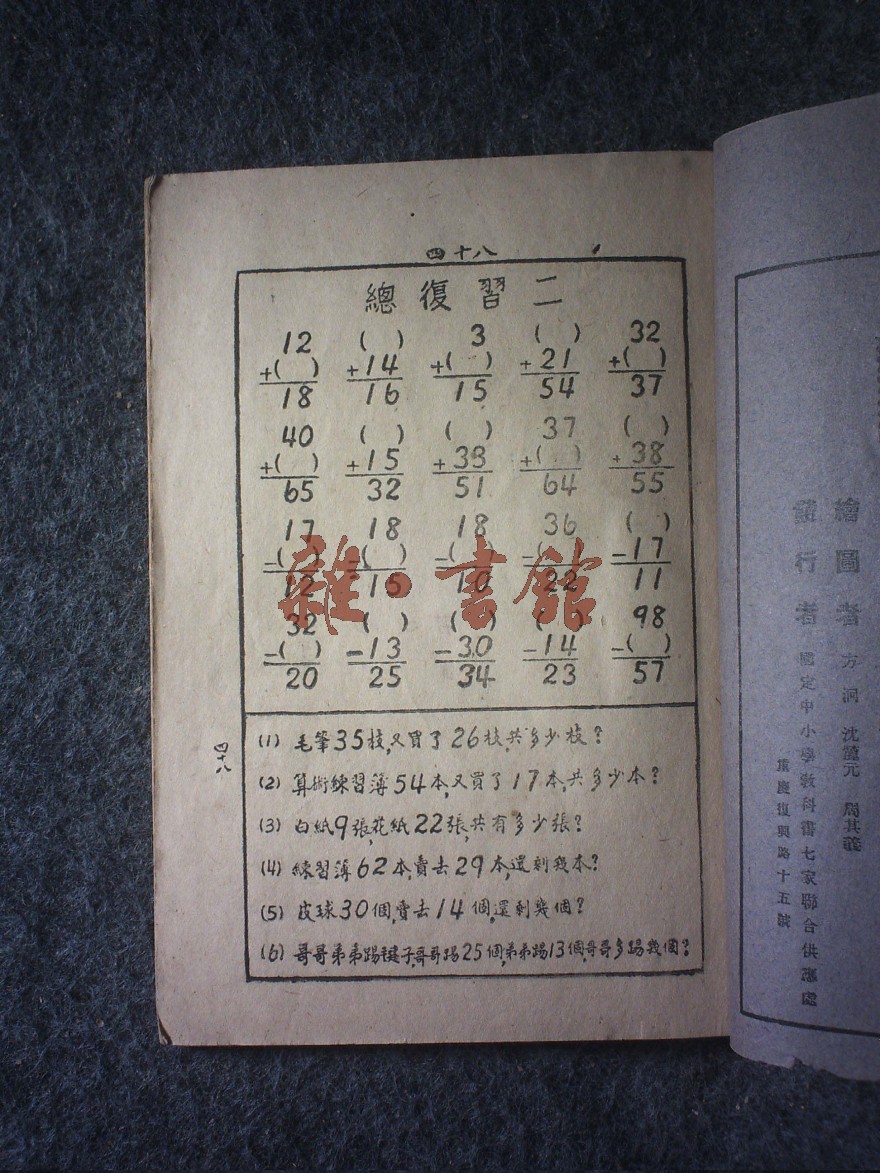 四十八
總復習二
12 ( ) 3 ( ) 32
+( ) +14 +( ) +21 +( )
18 16 15 54 37
40 ( ) ( ) 37 ( )
+( ) +15 +33 +( ) +38
65 32 51 64 55
17 18 18 36 ( )
-( ) -( ) -( ) -( ) -17
12 15 10 22 11
雜·書館
32 ( ) ( ) ( ) 98
-( ) -13 -30 -14 -( )
20 25 34 23 57
(1) 毛筆35枝,又買了26枝,共多少枝?
(2) 算術練習簿54本,又買了17本,共多少本?
(3) 白紙9張,花紙22張,共有多少張?
(4) 練習簿62本,賣去29本,還剩幾本?
(5) 皮球30個,賣去14個,還剩幾個?
(6) 哥哥弟弟踢毽子,哥哥踢25個,弟弟踢13個,哥哥多踢幾個?
四十八
繪圖者 方洞 沈 元
行者 國定中小學教科書七家聯合供應處
重慶復興路十五號